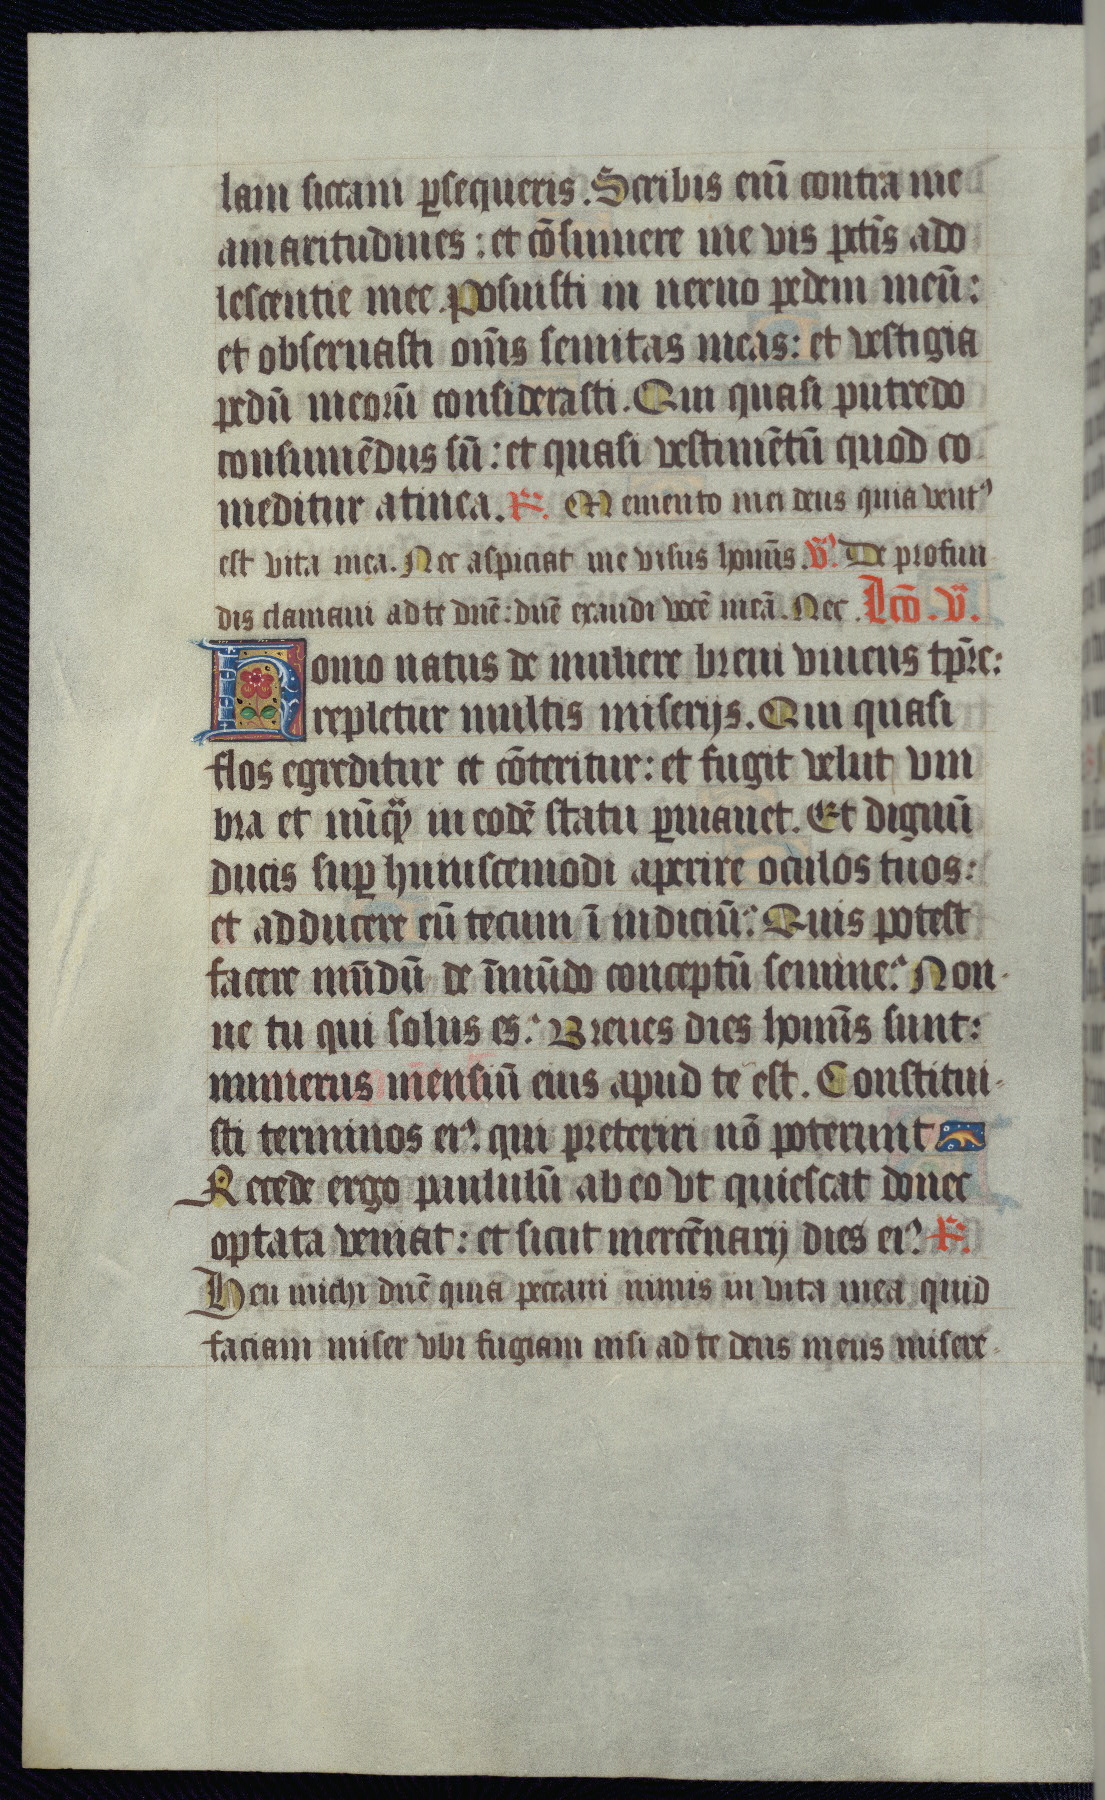 lam siccam ꝑsequeris. Scribis em̄ contra me
amaritudines: et cōsumere me vis pctīs ado
lescentie mee. Posuisti in neruo pedem meū:
et obseruasti om̄s semitas meas: et vestigia
pedū meoꝝū considerasti. Qui quasi putredo
consumēdus sū: et quasi vestimētū quod co
meditur a tinea. R. Memento mei deus quia vent⁹
est vita mea. Nec aspiciat me visus homīs. V̄. De profun
dis clamaui ad te dn̄e: dn̄e exaudi vocē meā. Nec. Lcō. v̄.
Homo natus de muliere breui viuens tp̄re:
repletur multis miserijs. Qui quasi
flos egreditur et cōteritur: et fugit velut vm
bra et nūqꝫ in eodē statu ꝑmanet. Et dignū
ducis suꝑ huiuscemodi aperire oculos tuos:
et adducere eū tecum ī iudiciū? Quis potest
facere mūdū de īmūdo conceptū semine? Non-
ne tu qui solus es? Breues dies homīs sunt:
numerus mensiū eius apud te est. Constitui-
sti terminos ei⁹. qui preteriri nō poterunt
Recede ergo paululū ab eo vt quiescat donec
optata veniat: et sicut mercēnarij dies ei⁹. R.
Heu michi dn̄e quia peccaui nimis in vita mea quid
faciam miser vbi fugiam nisi ad te deus meus misere-